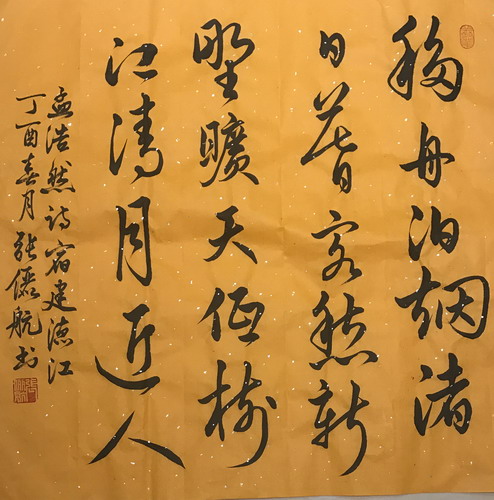 移舟泊烟渚
日暮客愁新
野旷天低树
江清月近人
孟浩然诗宿建德江
丁酉春月张俪航书